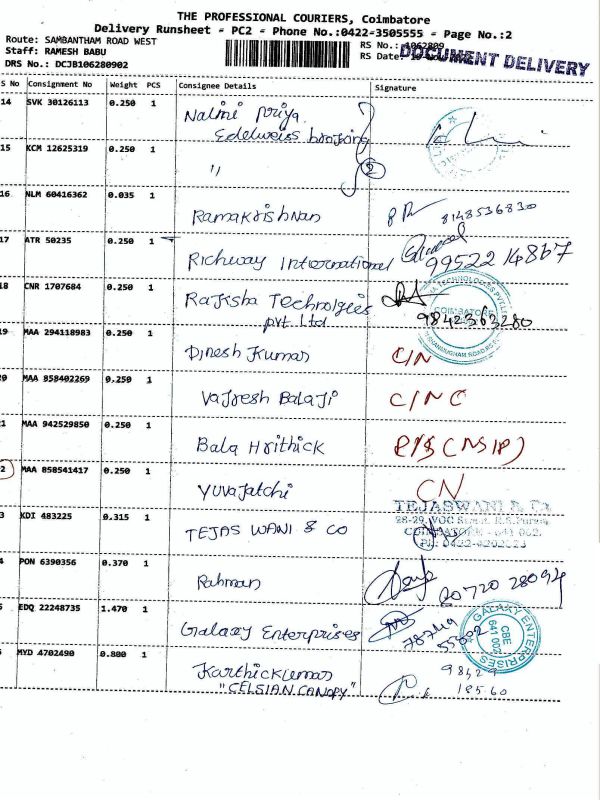 THE PROFESSIONAL COURIERS, Coimbatore
Delivery Runsheet - PC2 - Phone No.:0422-3505555 - Page No.:2
Route: SAMBANTHAM ROAD WEST
Staff: RAMESH BABU
DRS No.: DCJB106280902
RS No.: 1062809
RS Date:
DOCUMENT DELIVERY
S No Consignment No Weight PCS Consignee Details Signature
14 SVK 30126113 0.250 1 Nalini Priya
Edelweiss broking
15 KCM 12625319 0.250 1 "
2
16 NLM 60416362 0.035 1 Ramakrishnan 8148536830
17 ATR 50235 0.250 1 Richway International 99522 14867
18 CNR 1707684 0.250 1 Raksha Technolgies
pvt Ltd 9842363280
COIMBATORE
19 MAA 294118983 0.250 1 Dinesh Kumar C/N
20 MAA 858402269 0.250 1 Vajresh Balaji C/N C
21 MAA 942529850 0.250 1 Bala Hrithick P/S (NSIP)
2 MAA 858541417 0.250 1 Yuvajatchi CN
3 KDI 483225 0.315 1 TEJAS WANI & CO
TEJASWANI & Co
28-29, VOC Street, R.S.Puram,
COIMBATORE - 641 002.
4 PON 6390356 0.370 1 Rahman 90720 28094
5 EDQ 22248735 1.470 1 Galaxy Enterprises 78719
55892
GALAXY ENTERPRISES
CBE
641 002
MYD 4702490 0.800 1 Karthickumar
"CELSIAN CANOPY" 98429
18560